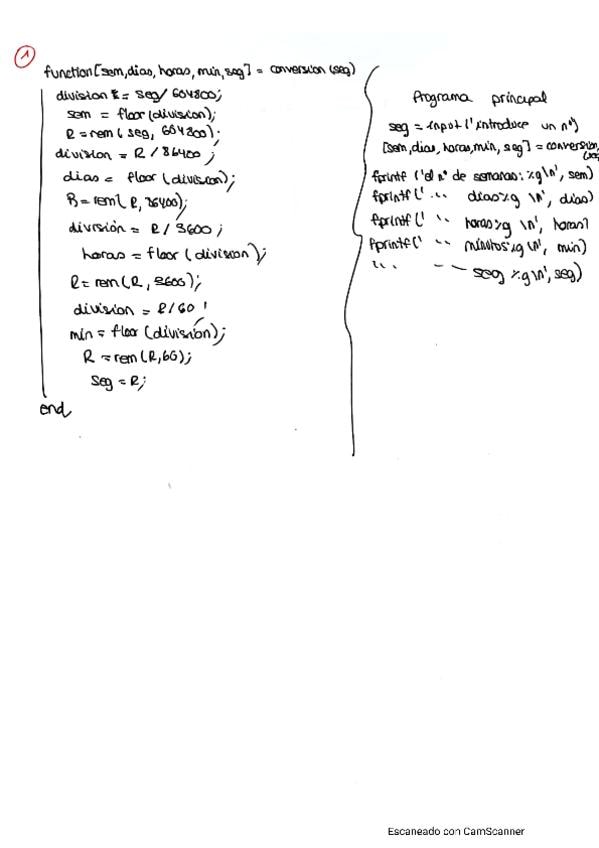 1
function[sem,dias,horas,min,seg] = conversion(seg)
division = seg/604800;
sem = floor(division);
R = rem(seg, 604800);
division = R/86400;
dias = floor(division);
R = rem(R, 86400);
división = R/3600;
horas = floor(division);
R = rem(R, 3600);
división = R/60;
min = floor(división);
R = rem(R,60);
seg = R;
end
Programa principal
seg = input('introduce un nº')
[sem,dias,horas,min,seg] = conversion
fprintf('el nº de semanas: %g\n', sem)
fprintf(' " días %g \n', dias)
fprintf(' " horas %g \n', horas)
fprintf(' " minutos %g \n', min)
" -- seg %g \n', seg)
Escaneado con CamScanner